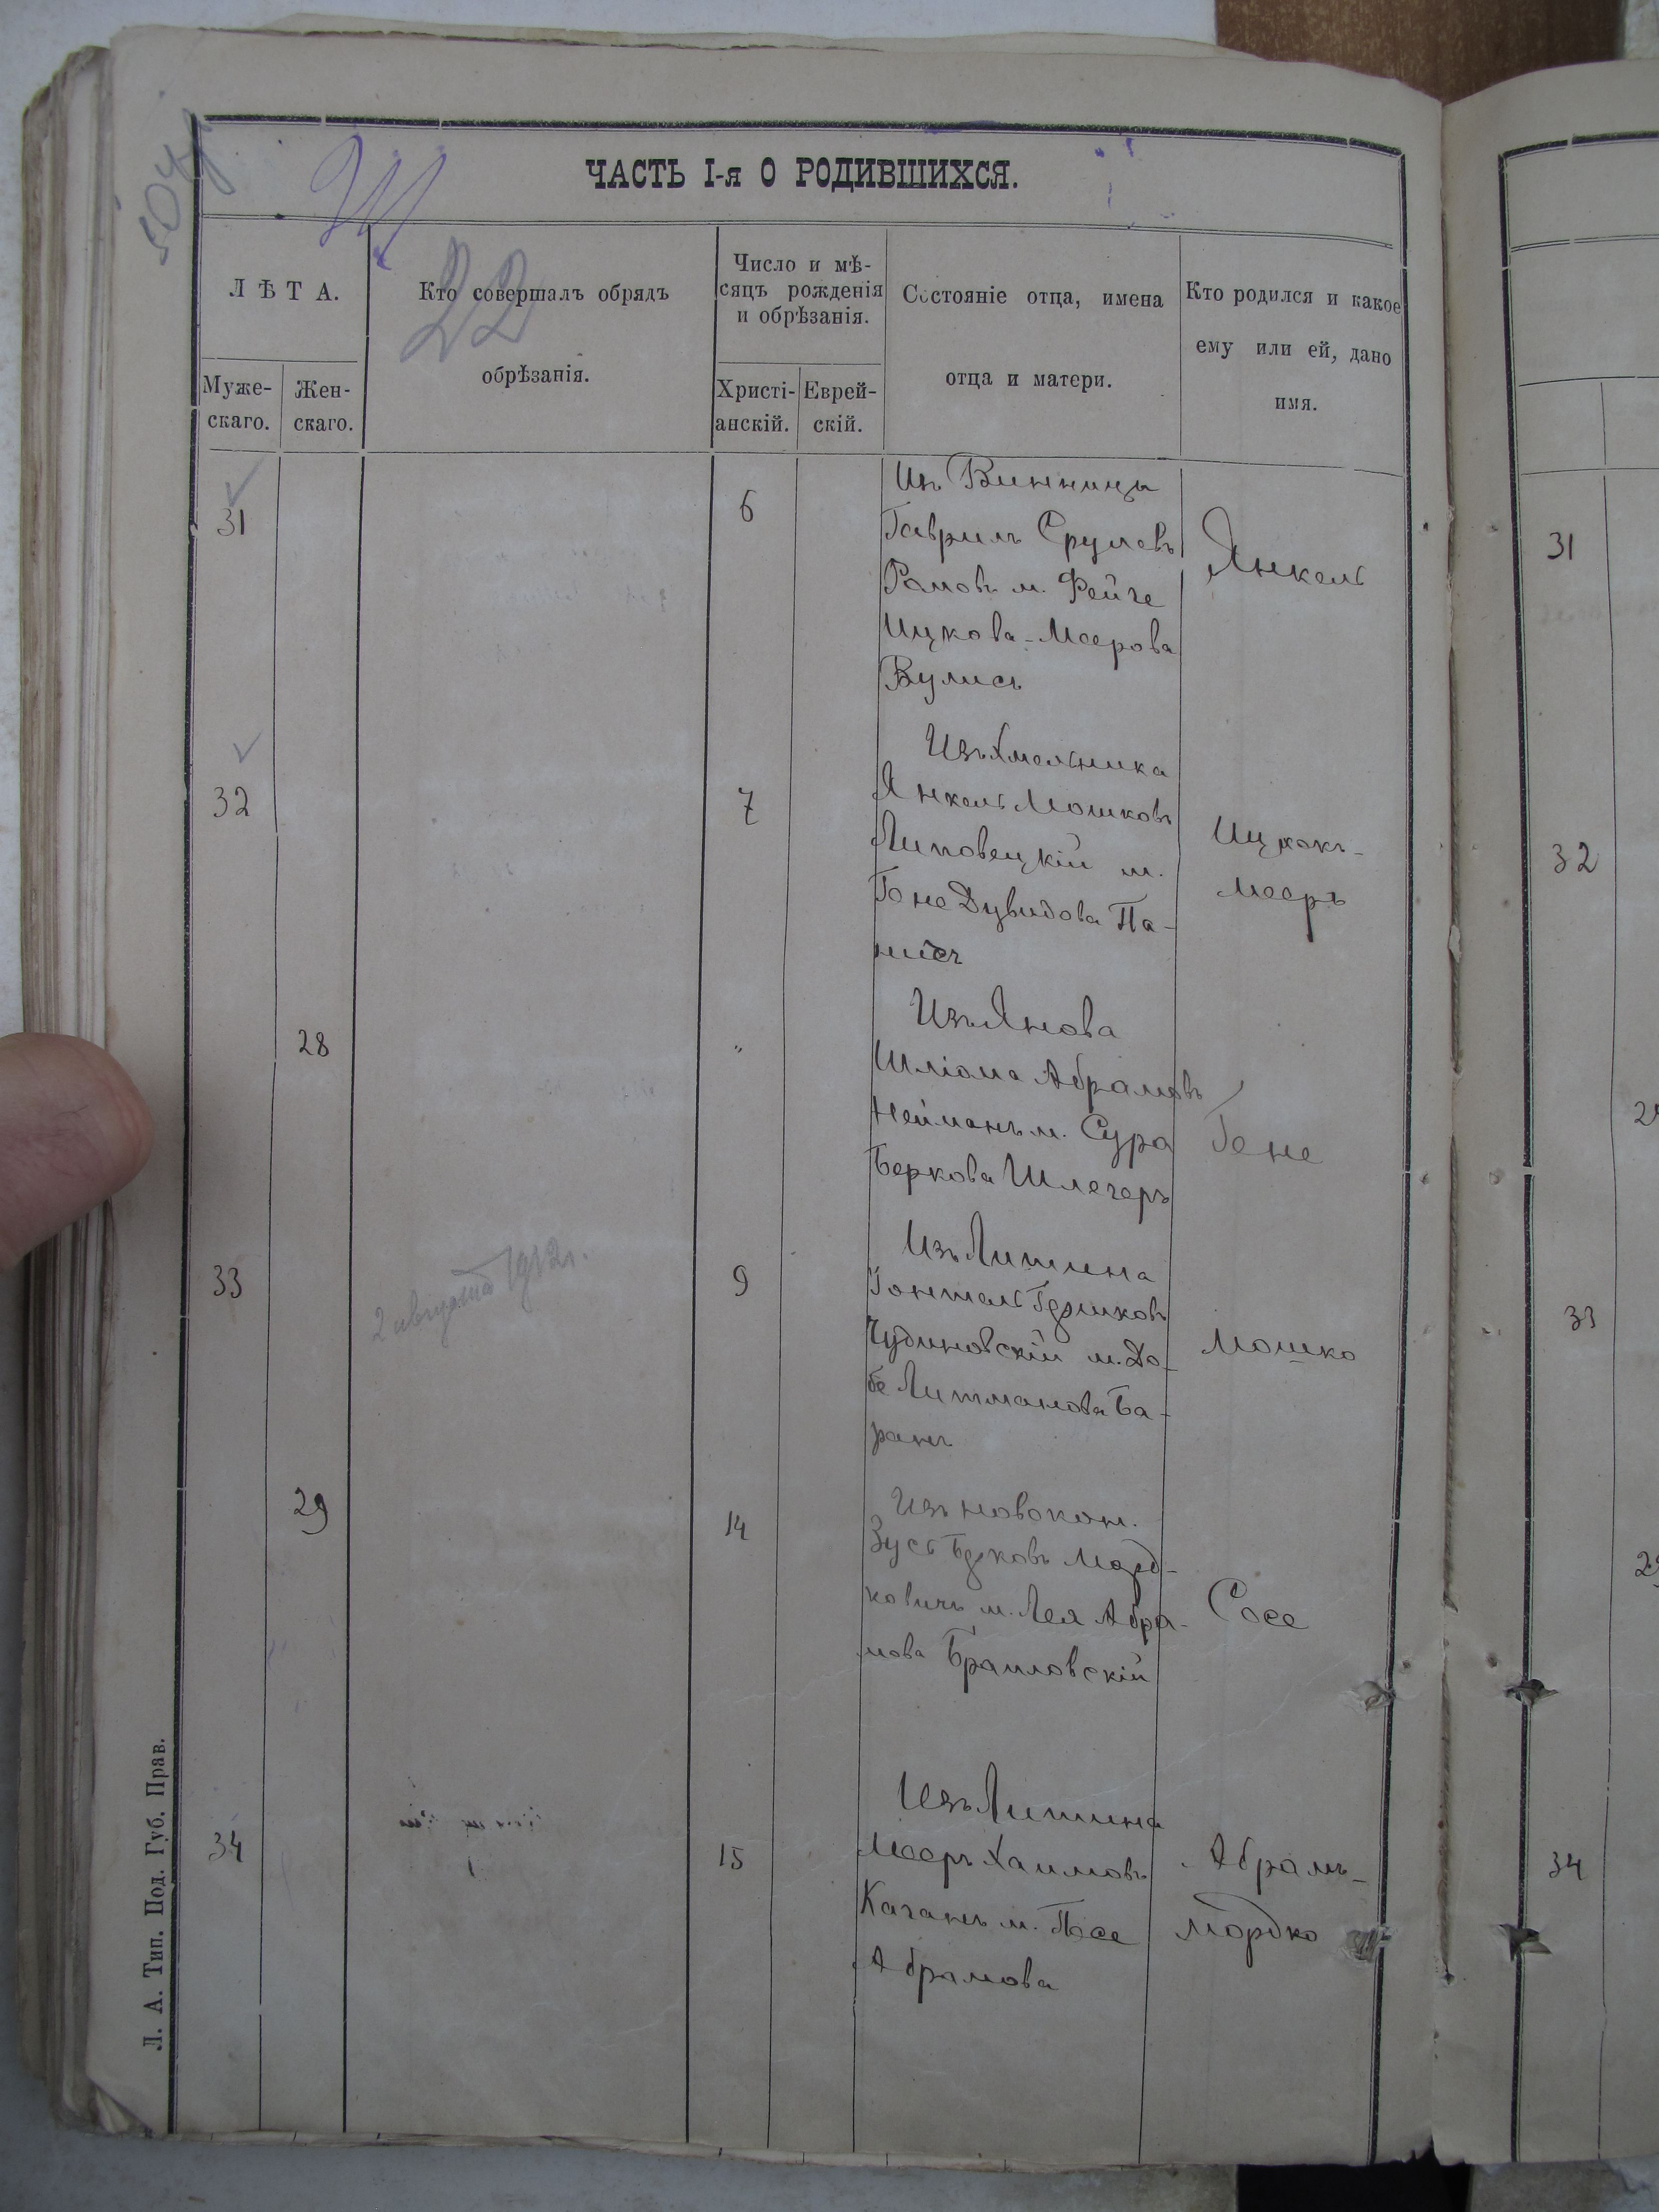 ЧАСТЬ I-я О РОДИВШИХСЯ.
22
ЛѢТА.
Муже-
скаго.
Жен-
скаго.
Кто совершалъ обрядъ
обрѣзанія.
Число и мѣ-
сяцъ рожденія
и обрѣзанія.
Христі-
анскій.
Еврей-
скій.
Состояніе отца, имена
отца и матери.
Кто родился и какое
ему или ей, дано
имя.
31
6
Изъ Винницы
Гаврилъ Срулевъ
м. Фейге
Ицкова-Меерова
Вулисъ
Янкель
31
32
7
Изъ Хмельника
Янкель Мошковъ
Липовецкій м.
Гене Дувидова Па-
Ицхокъ-
Мееръ
32
28
"
Изъ Янова
Шліома Абрамовъ
Нейманъ м. Сура
Беркова Шлегеръ
Гене
33
2 августа 1912 г.
9
Изъ Литина
Гершковъ
Чудновскій м. До-
бе Литманова Ба-
ранъ
Мошко
33
29
14
Изъ Новокон.
Зусь Берковъ Морд-
ковичъ м. Лея Абра-
мова Браиловскій
Сосе
34
15
Изъ Литина
Мееръ Хаимовъ
Каганъ м. Песе
Абрамова
Абрамъ-
Мордко
34
Л. А. Тип. Под. Губ. Прав.